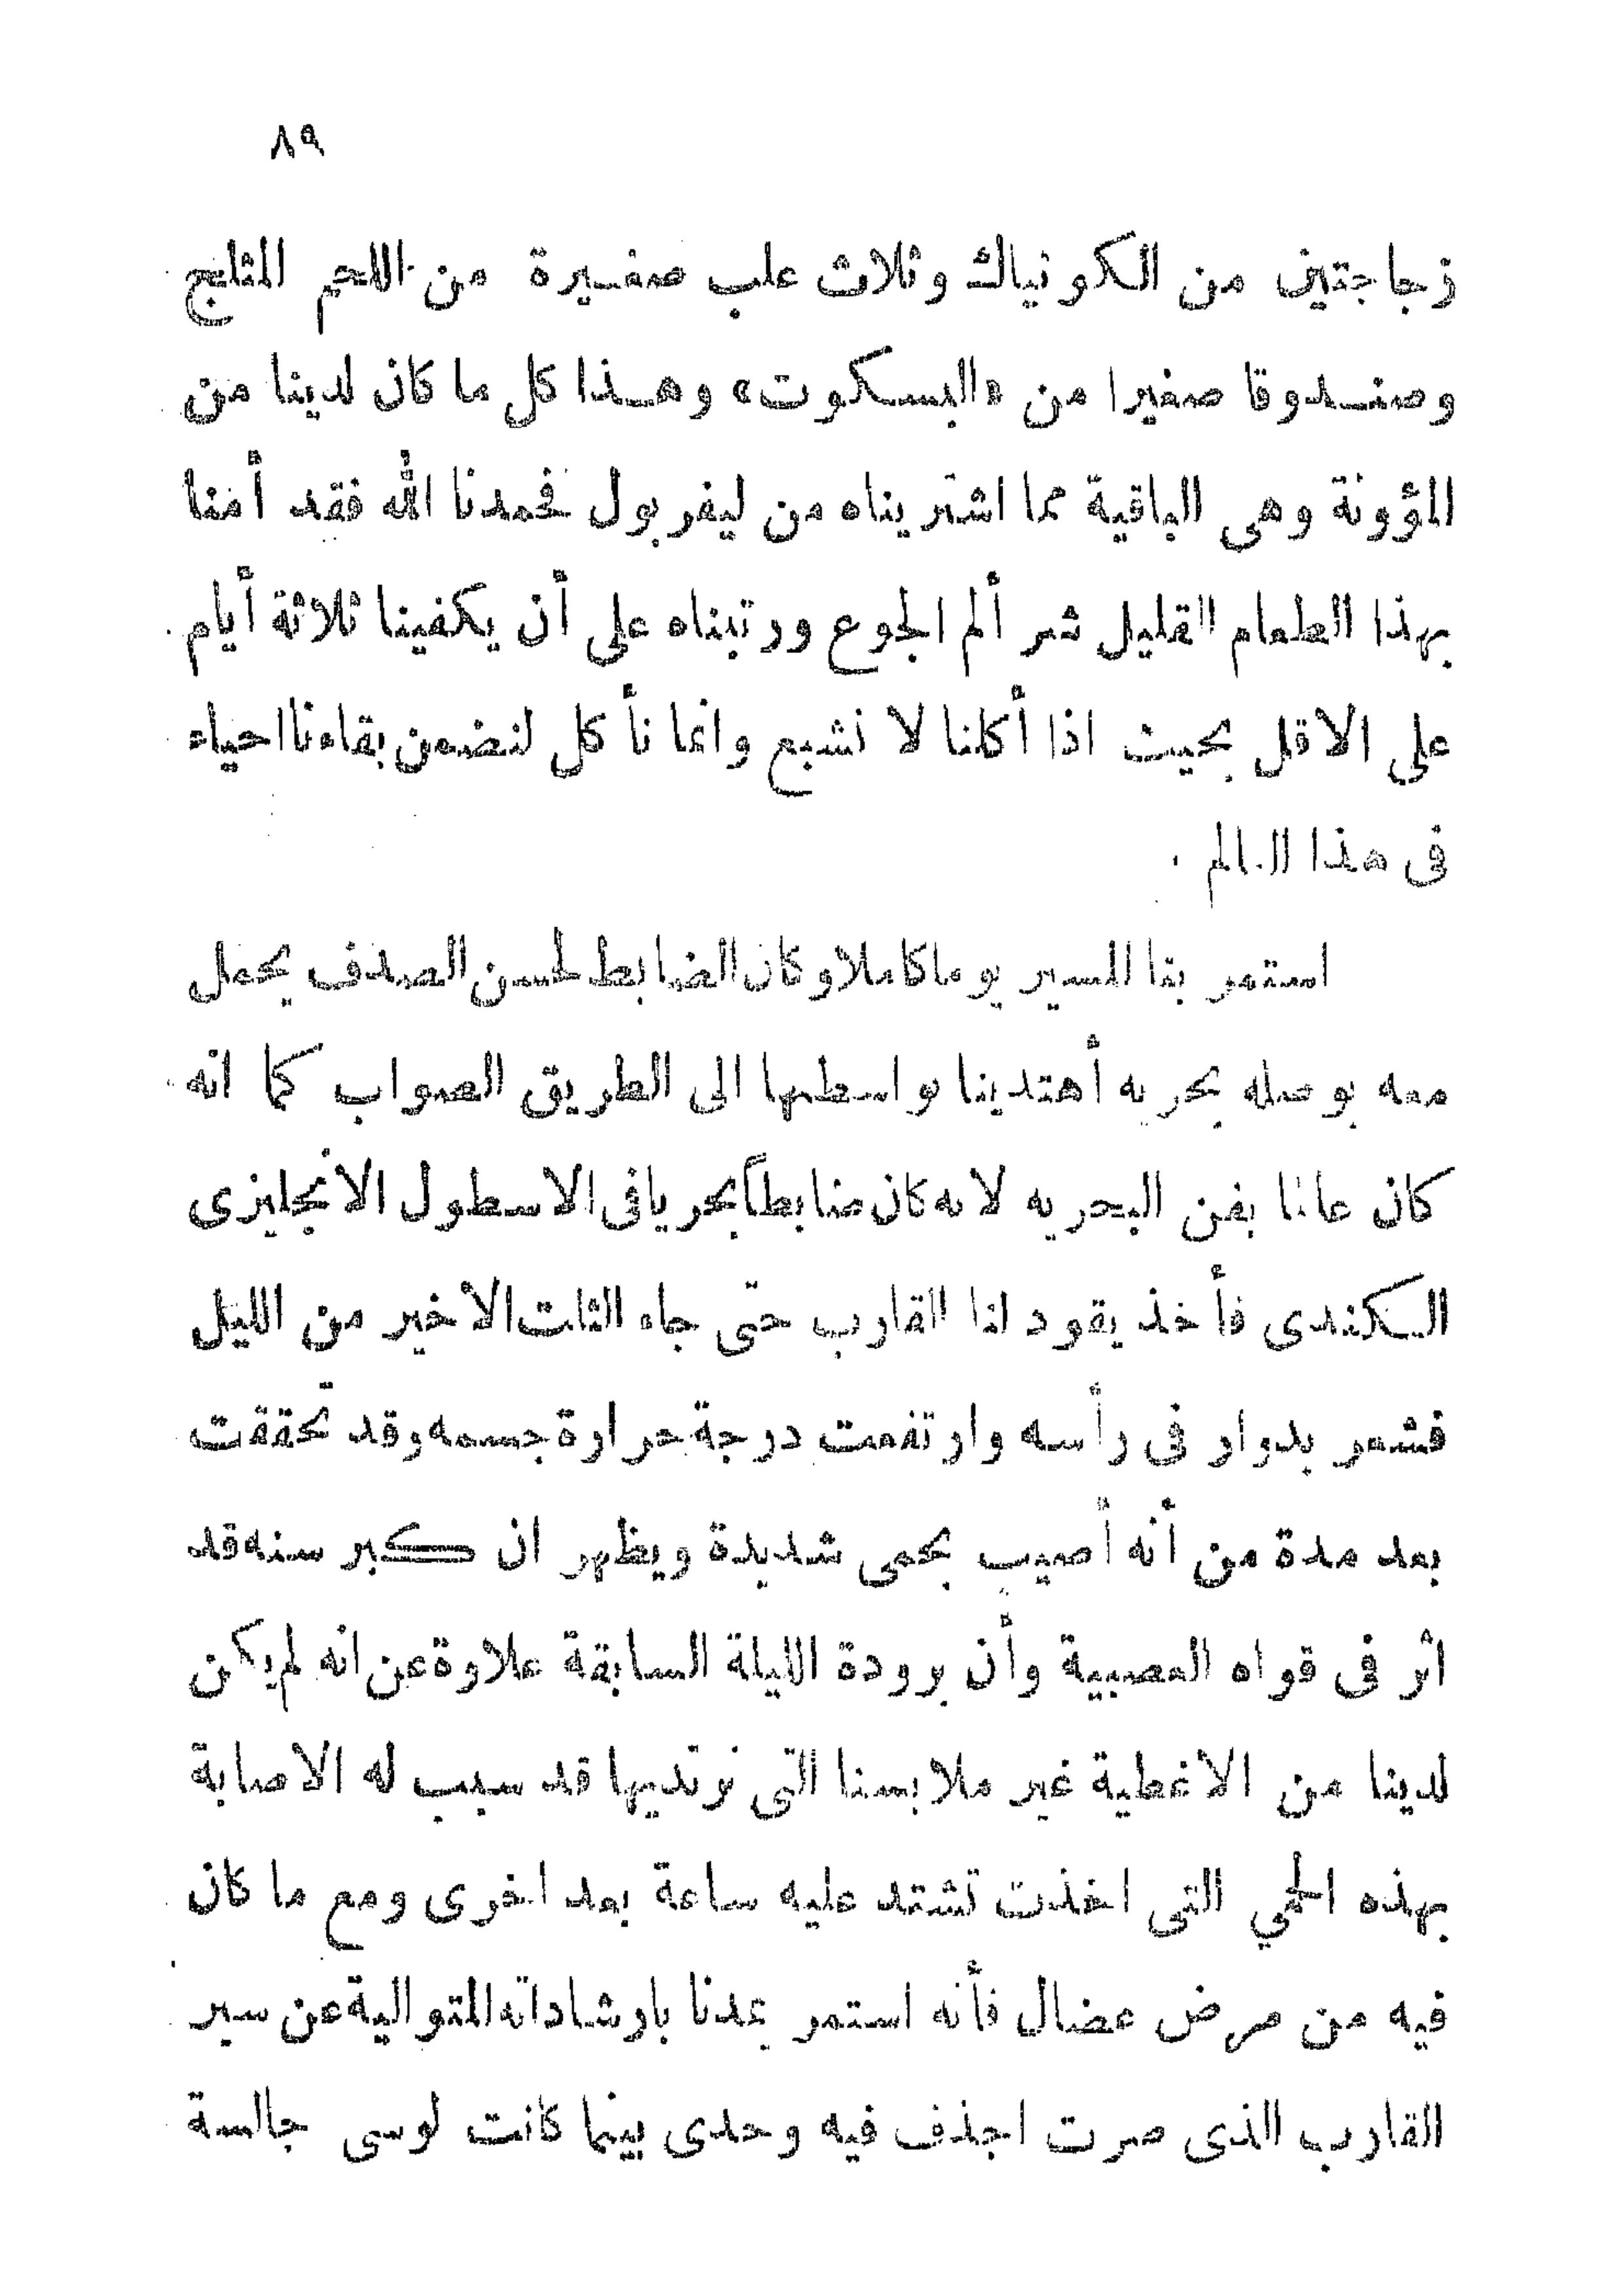 ٨٩
زجاجتين من الكونياك وثلاث علب صغيرة من اللحم المثلج
وصندوقا صغيرا من «البسكوت» وهذا كل ما كان لدينا من
المؤونة وهى الباقية مما اشتريناه من ليفربول فحمدنا الله فقد أمنا
بهذا الطعام القليل شر ألم الجوع ورتبناه على أن يكفينا ثلاثة أيام
على الاقل بحيث اذا أكلنا لا نشبع وانما نأكل لنضمن بقاءنا احياء
فى هذا العالم .
استمر بنا المسير يوما كاملا وكان الضابط لحسن الصدف يحمل
معه بوصله بحريه أهتدينا بواسطتها الى الطريق الصواب كما انه
كان عالما بفن البحريه لانه كان ضابطاً بحريا فى الاسطول الانجليزى
الكندى فأخذ يقود لنا القارب حتى جاء الثلث الاخير من الليل
فشعر بدوار فى رأسه وارتفعت درجة حرارة جسمه وقد تحققت
بعد مدة من أنه أصيب بحمى شديدة ويظهر ان كبر سنه قد
اثر فى قواه العصبية وأن برودة الليلة السابقة علاوة عن انه لم يكن
لدينا من الاغطية غير ملابسنا التى نرتديها قد سبب له الاصابة
بهذه الحمي التى اخذت تشتد عليه ساعة بعد اخرى ومع ما كان
فيه من مرض عضال فأنه استمر يمدنا بارشاداته المتوالية عن سير
القارب الذى صرت اجذف فيه وحدى بينما كانت لوسى جالسة